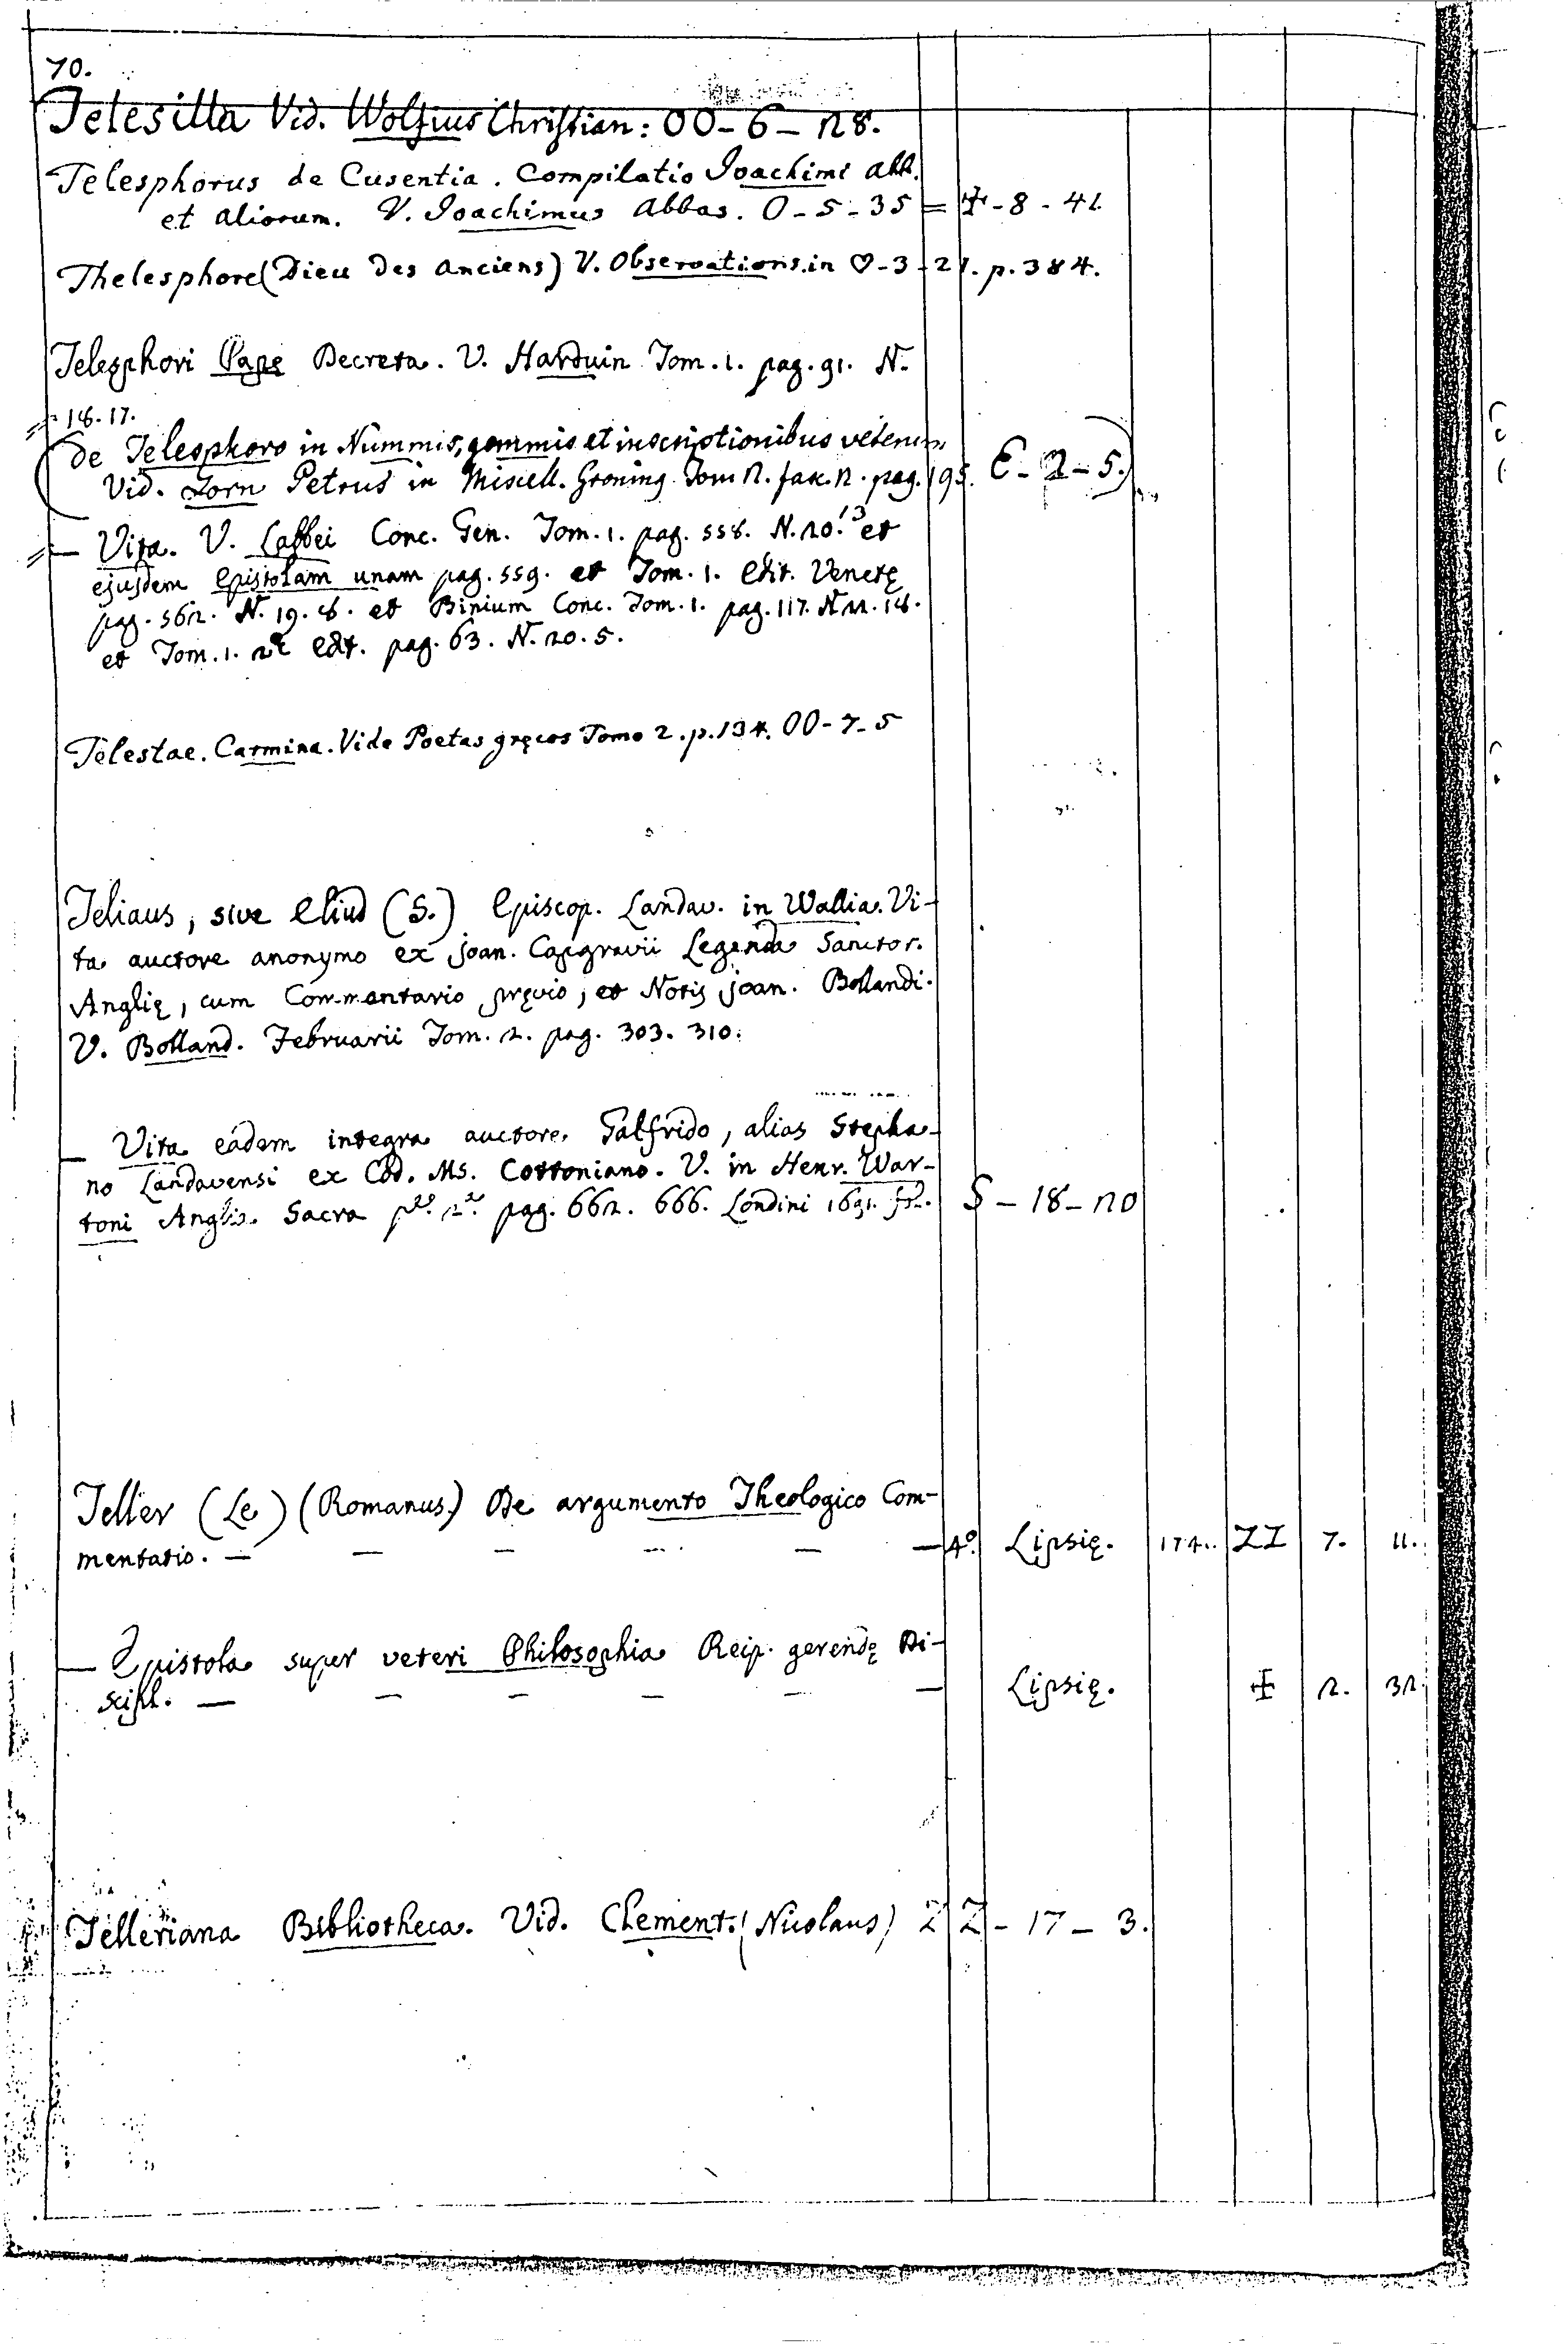 70.
Telesilla Vid. Wolfius Christian: OO-6-28.
Telesphorus de Cusentia. Compilatio Joachimi abb.
et aliorum. V. Joachimus abbas. O-5-35 = ‡-8-41.
Thelesphore (Dieu des anciens) V. Observations in ♡-3-21. p. 384.
Telesphori Papę Decreta. V. Harduin Tom. 1. pag. 91. N.
18. 17.
(de Telesphoro in Nummis, gemmis et inscriptionibus veterum
Vid. Zorn Petrus in Miscell. Groning. Tom 2. fasc. 2. pag. 195. E-2-5.)
— Vita. V. Labbei Conc. Gen. Tom. 1. pag. 558. N. 20. 13 et
ejusdem Epistolam unam pag. 559. et Tom. 1. Edit. Venetę
pag. 562. N. 19. 8. et Binium Conc. Tom. 1. pag. 117. N 22. 18.
et Tom. 1. 2æ Edit. pag. 63. N. 20. 5.
Telestae. Carmina. Vide Poetas gręcos Tomo 2. p. 134. OO-7-5
Teliaus, sive Eliud (S.) Episcop. Landav. in Wallia. Vi-
ta auctore anonymo ex Joan. Capgravii Legenda Sanctor.
Anglię, cum Commentario pręvio, et Notis Joan. Bollandi.
V. Bolland. Februarii Tom. 2. pag. 303. 310.
— Vita eadem integra auctore Galfrido, alias Stepha-
no Landavensi ex Cod. Ms. Cottoniano. V. in Henr. War-
toni Anglia Sacra p. 2. pag. 662. 666. Londini 1691. S-18-20
Teller (Le) (Romanus) De argumento Theologico Com-
mentatio. — — — — — — 4º. Lipsię. 174. ZZ 7. 11.
— Epistola super veteri Philosophia Reip. gerendę Di-
scipl. — — — — — — Lipsię. ‡ 2. 32.
Telleriana Bibliotheca. Vid. Clement. (Nicolaus) ZZ-17-3.